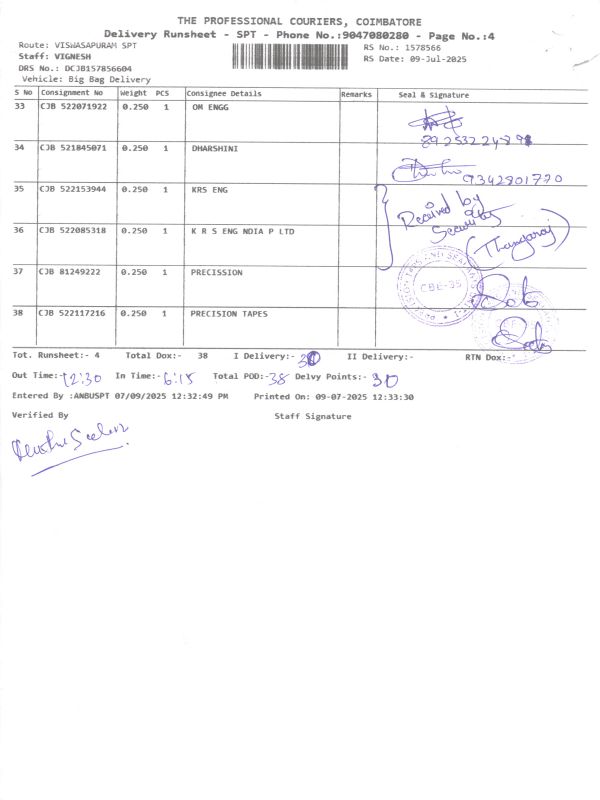 THE PROFESSIONAL COURIERS, COIMBATORE
Delivery Runsheet - SPT - Phone No.:9047080280 - Page No.:4
Route: VISWASAPURAM SPT
RS No.: 1578566
Staff: VIGNESH
RS Date: 09-Jul-2025
DRS No.: DCJB157856604
Vehicle: Big Bag Delivery
S No Consignment No Weight PCS Consignee Details Remarks Seal & Signature
33 CJB 522071922 0.250 1 OM ENGG
34 CJB 521845071 0.250 1 DHARSHINI
9342801770
35 CJB 522153944 0.250 1 KRS ENG
Received by
Security
36 CJB 522085318 0.250 1 K R S ENG NDIA P LTD
(Thangaraj)
37 CJB 81249222 0.250 1 PRECISSION
CBE-35
38 CJB 522117216 0.250 1 PRECISION TAPES
Tot. Runsheet:- 4 Total Dox:- 38 I Delivery:- II Delivery:- RTN Dox:-
Out Time:- 12:30 In Time:- 6:15 Total POD:- 38 Delvy Points:- 30
Entered By :ANBUSPT 07/09/2025 12:32:49 PM Printed On: 09-07-2025 12:33:30
Verified By Staff Signature